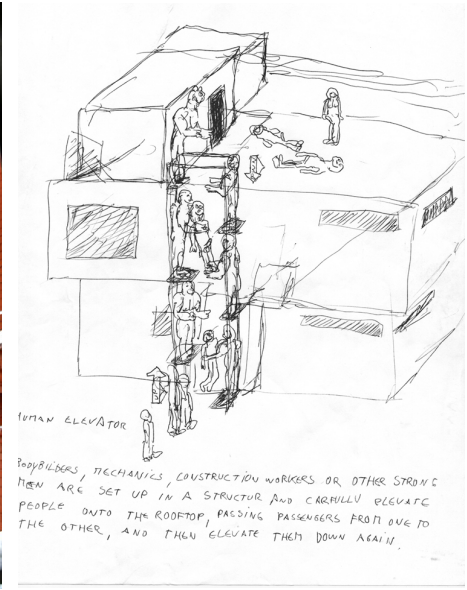 HUMAN ELEVATOR
BODYBILDERS, MECHANICS, CONSTRUCTION WORKERS OR OTHER STRONG
MEN ARE SET UP IN A STRUCTUR AND CARFULLY ELEVATE
PEOPLE ONTO THE ROOFTOP, PASSING PASSENGERS FROM ONE TO
THE OTHER, AND THEN ELEVATE THEM DOWN AGAIN.